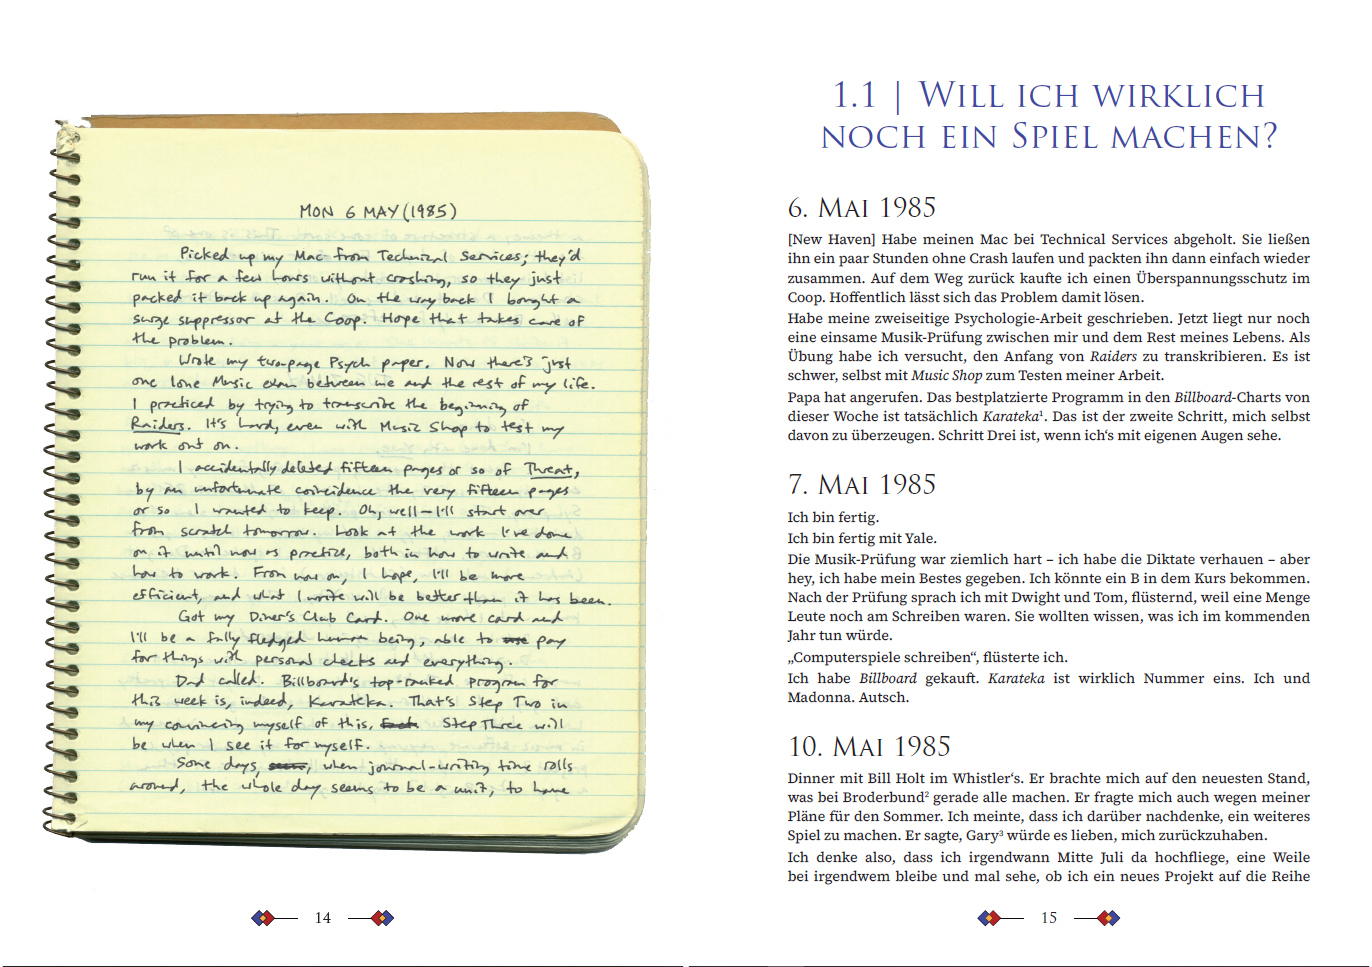 MON 6 MAY (1985)
Picked up my Mac from Technical Services; they'd
run it for a few hours without crashing, so they just
packed it back up again. On the way back I bought a
surge suppressor at the Coop. Hope that takes care of
the problem.
Wrote my two-page Psych paper. Now there's just
one lone Music exam between me and the rest of my life.
I practiced by trying to transcribe the beginning of
Raiders. It's hard, even with Music Shop to test my
work out on.
I accidentally deleted fifteen pages or so of Threat,
by an unfortunate coincidence the very fifteen pages
or so I wanted to keep. Oh, well—I'll start over
from scratch tomorrow. Look at the work I've done
on it until now as practice, both in how to write and
how to work. From now on, I hope, I'll be more
efficient, and what I write will be better than it has been.
Got my Diner's Club Card. One more card and
I'll be a fully fledged human being, able to pay
for things with personal checks and everything.
Dad called. Billboard's top-ranked program for
this week is, indeed, Karateka. That's Step Two in
my convincing myself of this. Step Three will
be when I see it for myself.
Some days, when journal-writing time rolls
around, the whole day seems to be a unit, to have
14
1.1 | WILL ICH WIRKLICH
NOCH EIN SPIEL MACHEN?
6. MAI 1985
[New Haven] Habe meinen Mac bei Technical Services abgeholt. Sie ließen
ihn ein paar Stunden ohne Crash laufen und packten ihn dann einfach wieder
zusammen. Auf dem Weg zurück kaufte ich einen Überspannungsschutz im
Coop. Hoffentlich lässt sich das Problem damit lösen.
Habe meine zweiseitige Psychologie-Arbeit geschrieben. Jetzt liegt nur noch
eine einsame Musik-Prüfung zwischen mir und dem Rest meines Lebens. Als
Übung habe ich versucht, den Anfang von Raiders zu transkribieren. Es ist
schwer, selbst mit Music Shop zum Testen meiner Arbeit.
Papa hat angerufen. Das bestplatzierte Programm in den Billboard-Charts von
dieser Woche ist tatsächlich Karateka¹. Das ist der zweite Schritt, mich selbst
davon zu überzeugen. Schritt Drei ist, wenn ich‘s mit eigenen Augen sehe.
7. MAI 1985
Ich bin fertig.
Ich bin fertig mit Yale.
Die Musik-Prüfung war ziemlich hart – ich habe die Diktate verhauen – aber
hey, ich habe mein Bestes gegeben. Ich könnte ein B in dem Kurs bekommen.
Nach der Prüfung sprach ich mit Dwight und Tom, flüsternd, weil eine Menge
Leute noch am Schreiben waren. Sie wollten wissen, was ich im kommenden
Jahr tun würde.
„Computerspiele schreiben“, flüsterte ich.
Ich habe Billboard gekauft. Karateka ist wirklich Nummer eins. Ich und
Madonna. Autsch.
10. MAI 1985
Dinner mit Bill Holt im Whistler‘s. Er brachte mich auf den neuesten Stand,
was bei Broderbund² gerade alle machen. Er fragte mich auch wegen meiner
Pläne für den Sommer. Ich meinte, dass ich darüber nachdenke, ein weiteres
Spiel zu machen. Er sagte, Gary³ würde es lieben, mich zurückzuhaben.
Ich denke also, dass ich irgendwann Mitte Juli da hochfliege, eine Weile
bei irgendwem bleibe und mal sehe, ob ich ein neues Projekt auf die Reihe
15